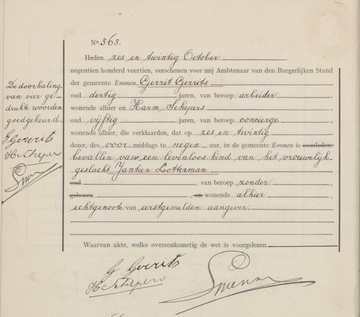 No 363.
Heden zes en twintig October
negentien honderd veertien, verschenen voor mij Ambtenaar van den Burgerlijken Stand
der gemeente Emmen, Gerrit Gerrets
oud dertig jaren, van beroep arbeider
wonende alhier en Harm Schepers
oud vijftig jaren, van beroep concierge
wonende alhier, die verklaarden, dat op zes en twintig
dezer, des voormiddags te negen uur, in de gemeente Emmen is overleden
bevallen van een levenloos kind van het vrouwelijk
geslacht Jantien Lotterman
oud , van beroep zonder
geboren en wonende alhier
echtgenoote van eerstgemelden aangever
Waarvan akte, welke overeenkomstig de wet is voorgelezen
De doorhaling
van vier ge-
drukte woorden
goedgekeurd.
G Gerrets
H Schepers
G Gerrets
H Schepers